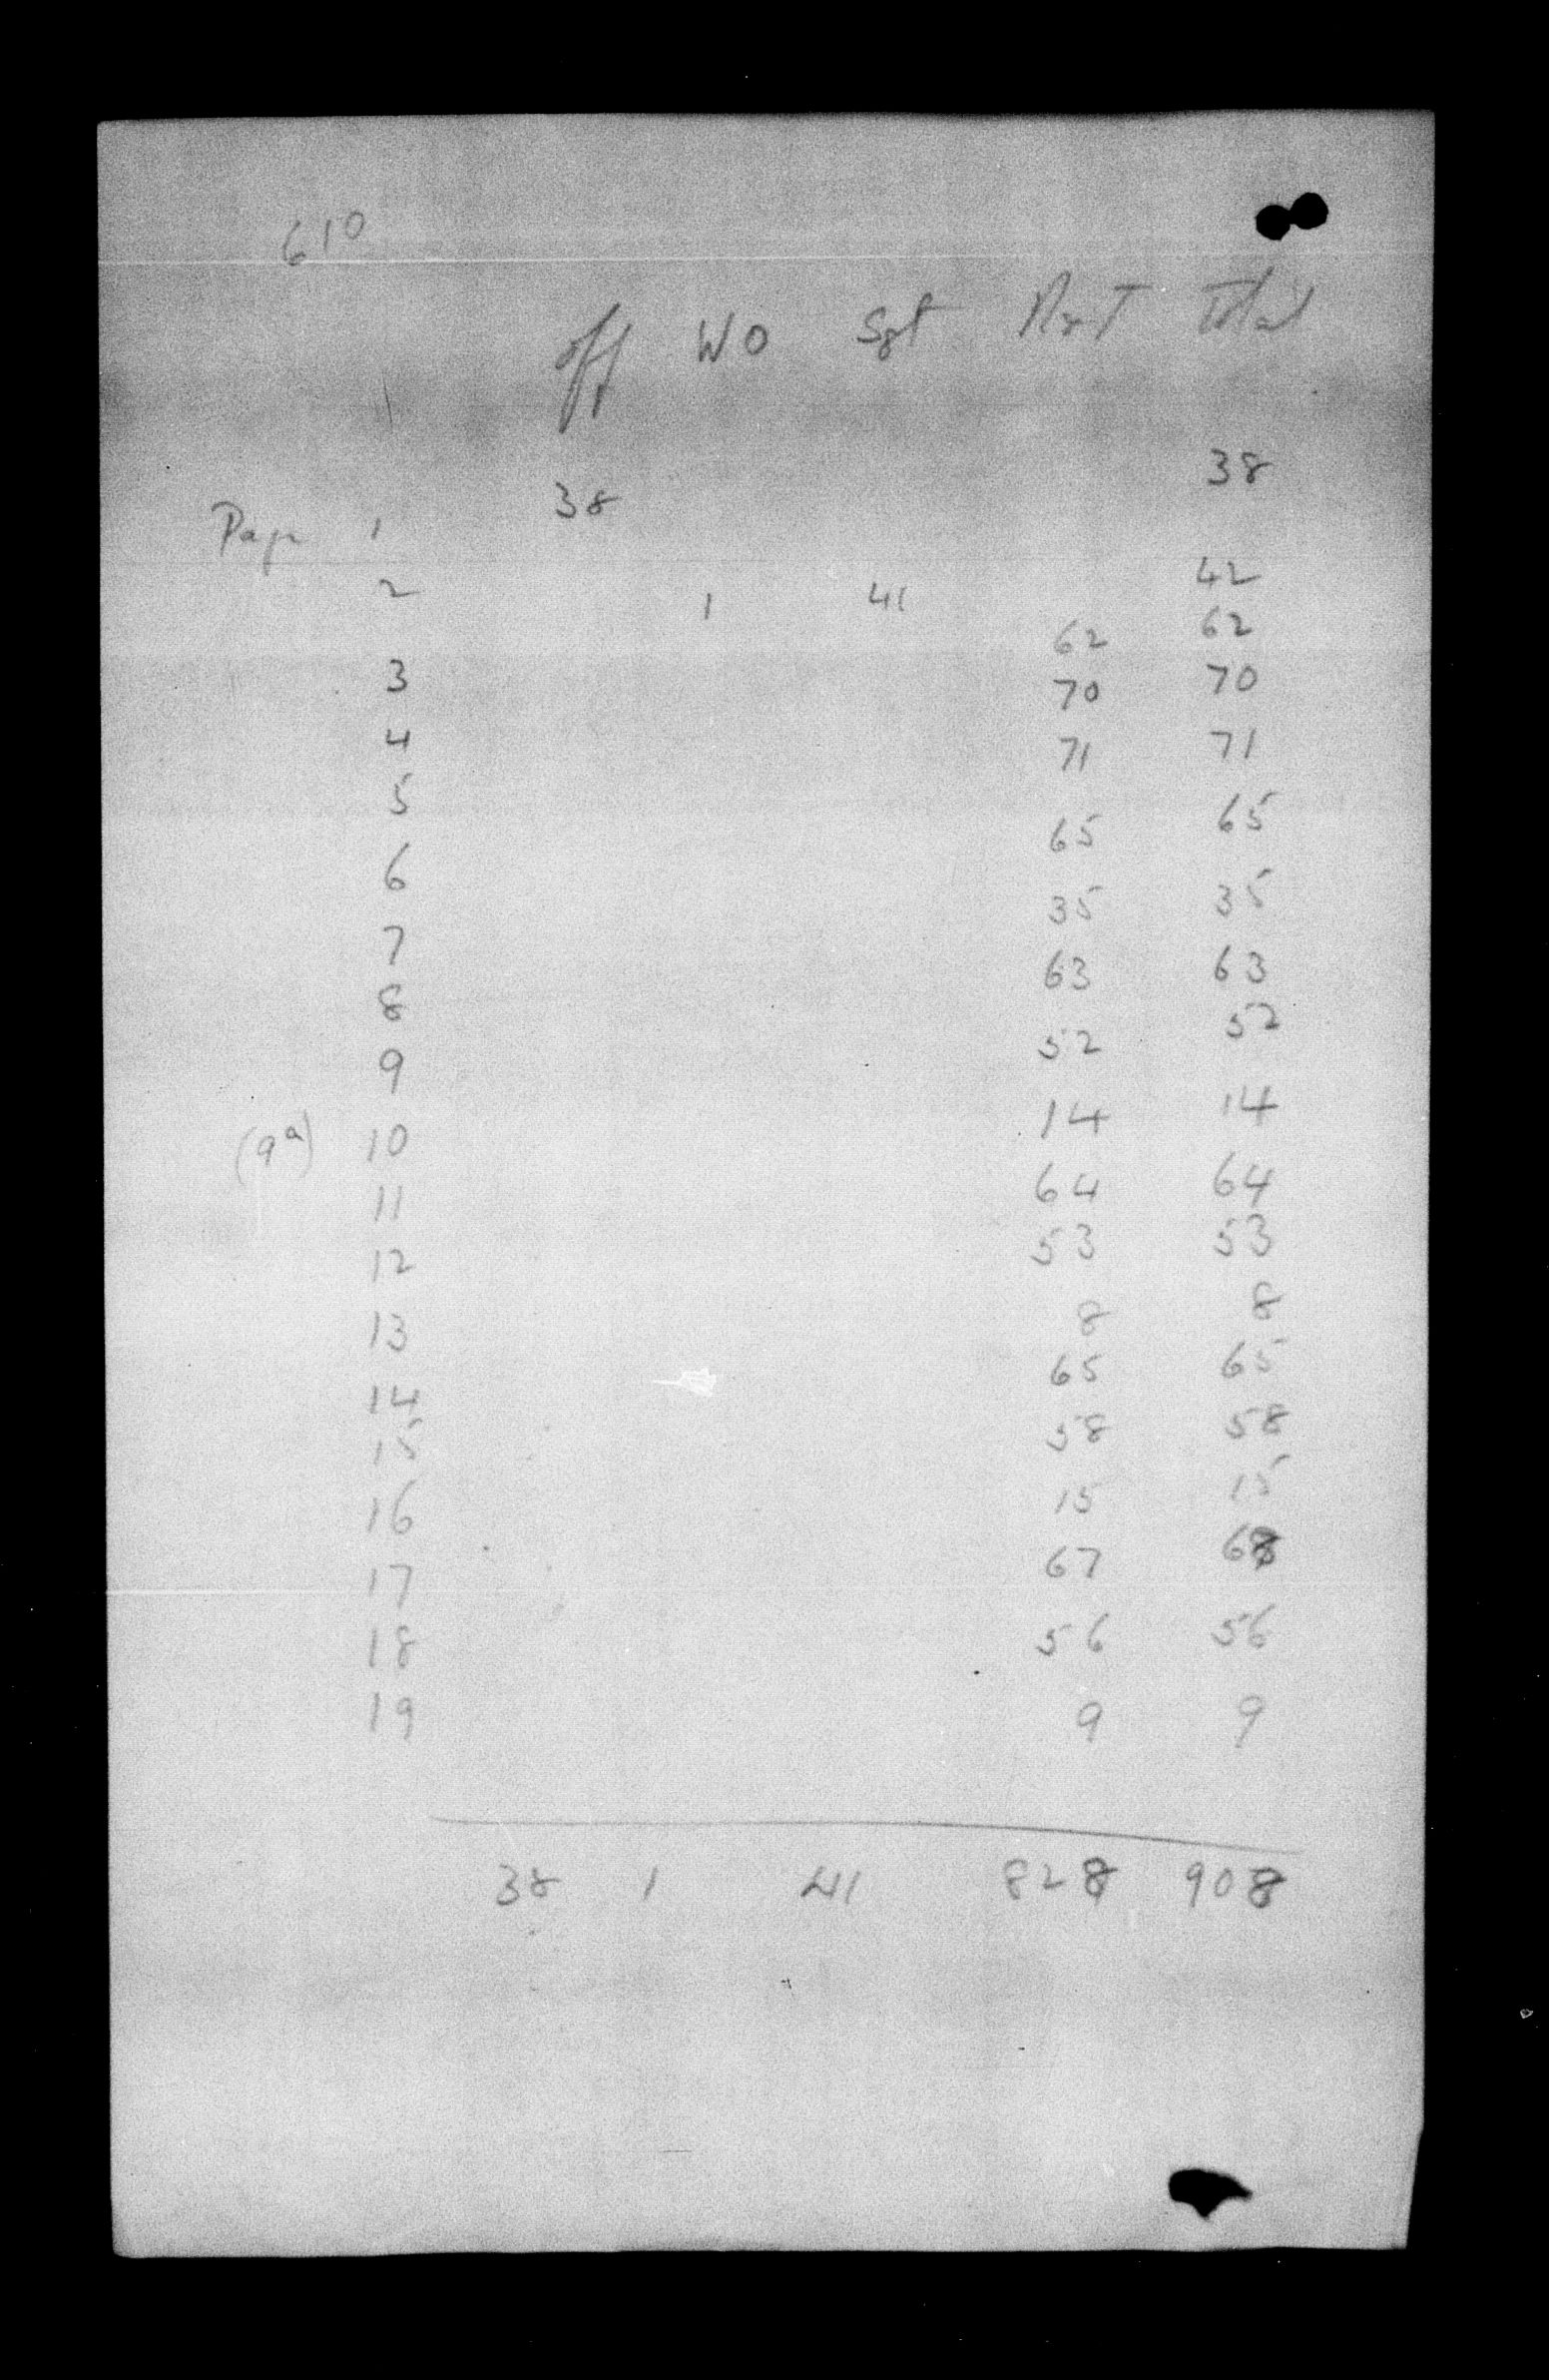 610
Off WO Sgt Total
Page 1 38 38
2 1 41 42
3 62 62
4 70 70
5 71 71
6 65 65
7 35 35
8 63 63
9 52 52
(9a) 10 14 14
11 64 64
12 53 53
13 8 8
14 65 65
15 58 58
16 15 15
17 67 68
18 56 56
19 9 9
38 1 41 828 908